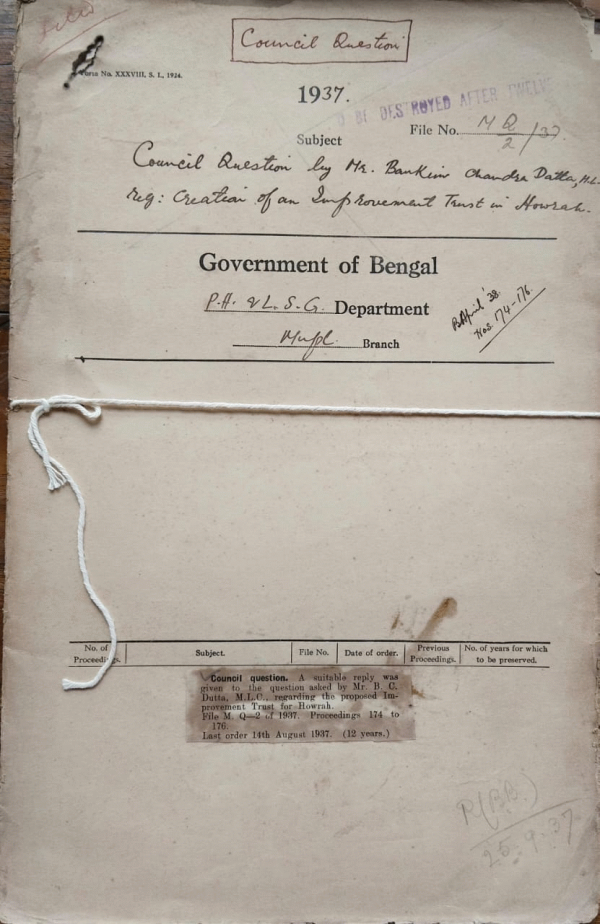 Council Question
Form No. XXXVIII, S. I., 1924.
1937.
BE DESTROYED AFTER TWELVE
Subject
File No. M Q 2/37.
Council Question by Mr. Bankim Chandra Datta, M.L.
reg: Creation of an Improvement Trust in Howrah.
Government of Bengal
P.H. & L. S. G. Department
B April '38.
Nos. 174-176.
Branch
No. of Proceedings.
Subject.
File No.
Date of order.
Previous Proceedings.
No. of years for which to be preserved.
Council question. A suitable reply was
given to the question asked by Mr. B. C.
Dutta, M.L.C., regarding the proposed Im-
provement Trust for Howrah.
File M. Q—2 of 1937. Proceedings 174 to
176.
Last order 14th August 1937. (12 years.)
25.9.37